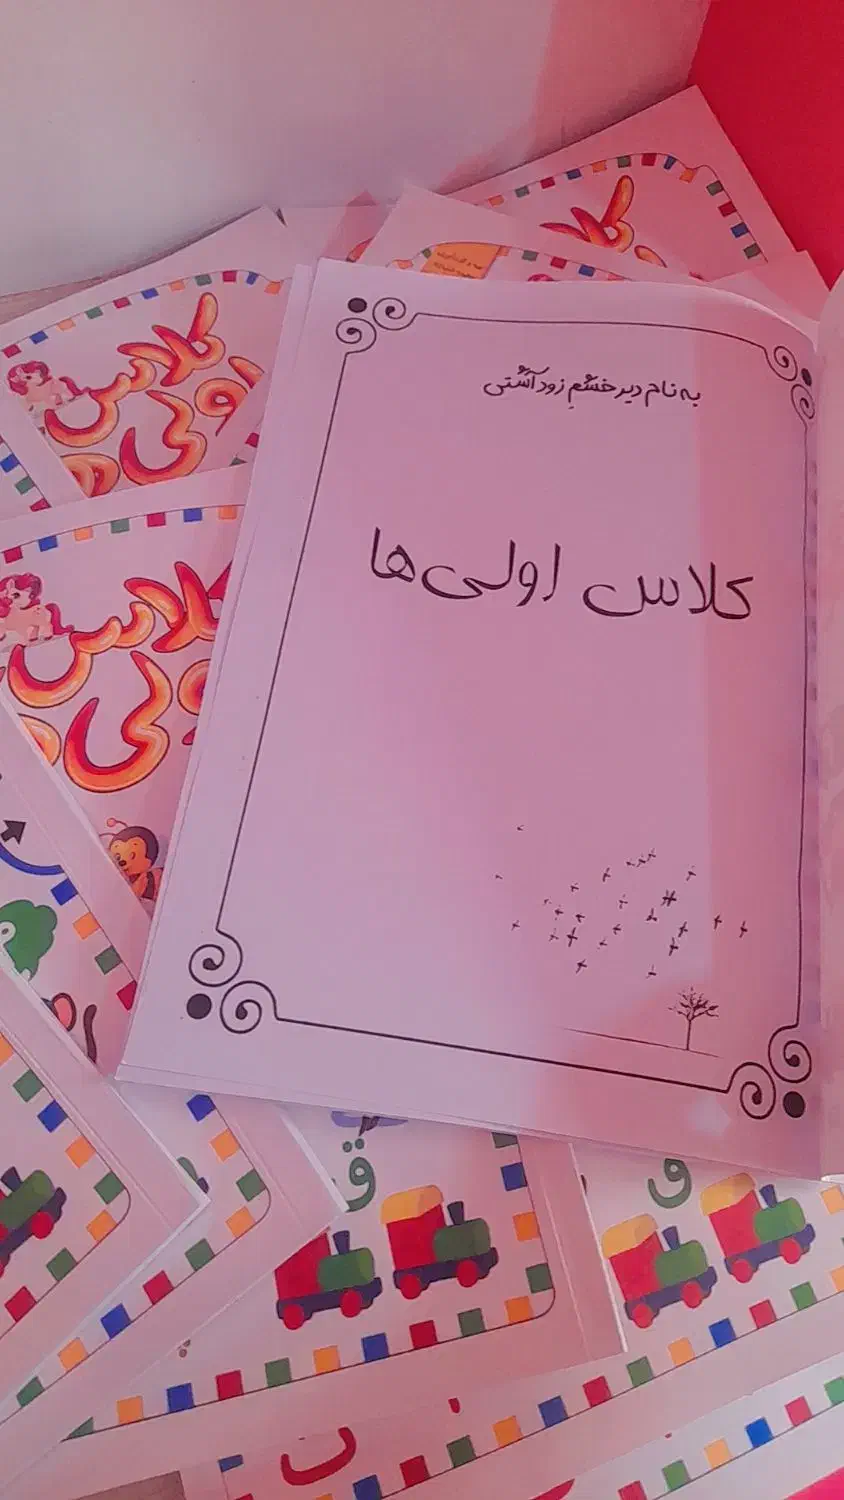 به نام دیر خشمِ زود آشتی
کلاس اولی‌ها
کلاس
اولی
کلاس
ولی
کلا
ق
ق